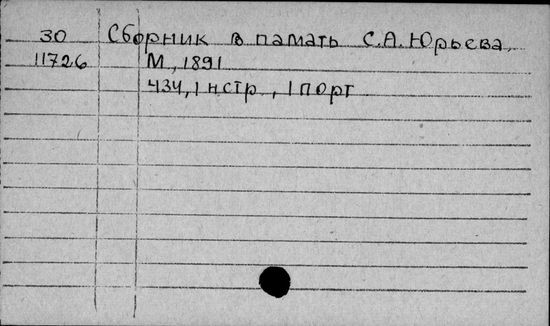 30 Сборник в память С.А. Юрьева.
11726 М., 1891
434, 1 н стр., 1 порт